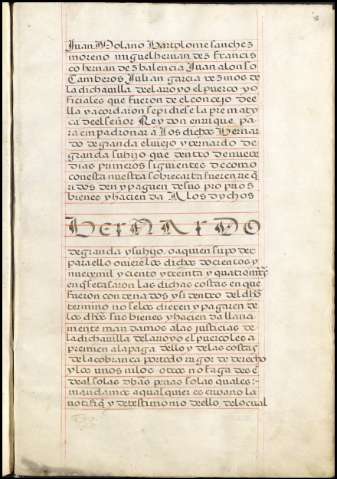 Juan Solano Bartolome sanches
moreno miguel hernan des francis
co hernan de s balencia Juan alonso
Camberos Julian garcia vezinos de
la dicha villa del arroyo el puerco y o
ficiales que fueron de el concejo de e
lla y acordaron se pidiese la prematy
ca de el señor Rey don enrique pa
ra empadronar a los dichos bernar
do de granda el viejo y bernardo de
granda su hijo que dentro de nueve
dias primeros siguientes de como
con esta nuestra sobrecarta fueren re q
ridos den y paguen de sus propios
bienes y hacienda A los dychos
BERNARDO
de granda y su hijo o a quien su po der
para ello oviere los dichos docientos y
nueve mil y ciento y treinta y quatro mrs
en q se tasaron las dichas costas en que
fueron condenados y si dentro del dho
termino no se los dieren y paguen de
los dhos sus bienes y hacienda llana
mente mandamos a las justicias de
la dicha villa del arroyo el puerco les a
premien a la paga dello y de las costas
de la cobranca por todo rigor de derecho
y los unos ni los otros no fagades e
de al so las dhas penas so las quales
mandamos a qualquier escrivano la
notifiq y de testimonio de ello de lo cual